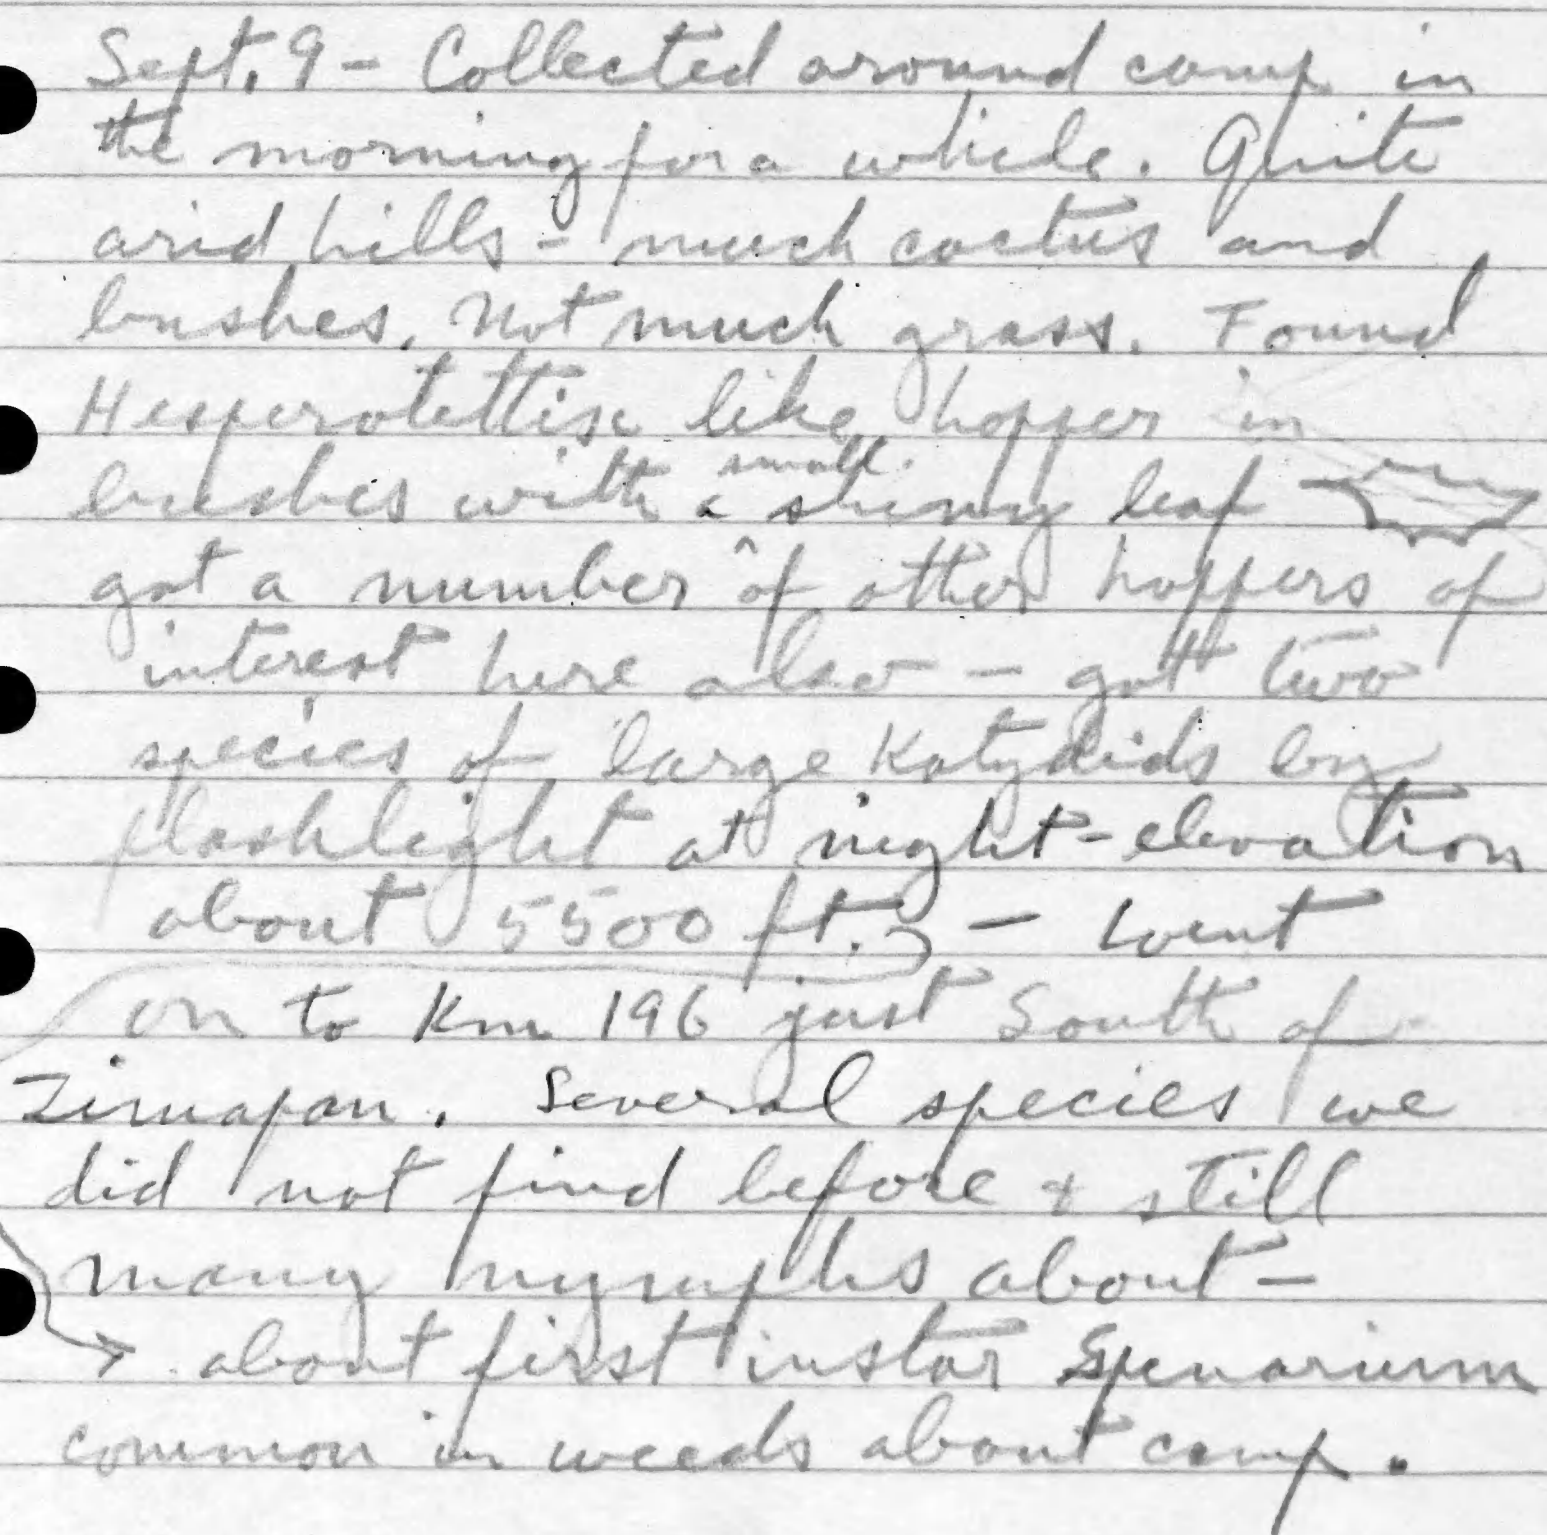 Sept. 9 - Collected around camp in
the morning for a while. Quite
arid hills - much cactus and
bushes, not much grass. Found
Hesperotettix like hopper in
bushes with a small shiny leaf
got a number of other hoppers of
interest here also - got two
species of large Katydids by
flashlight at night - elevation
about 5500 ft. - went
on to Km 196 just South of
Zimapan. Several species we
did not find before & still
many nymphs about -
→ about first instar Spenarium
common in weeds about camp.